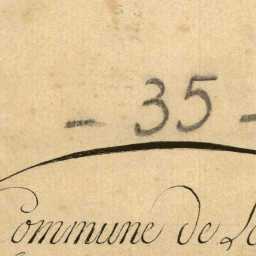 - 35 -
Commune de